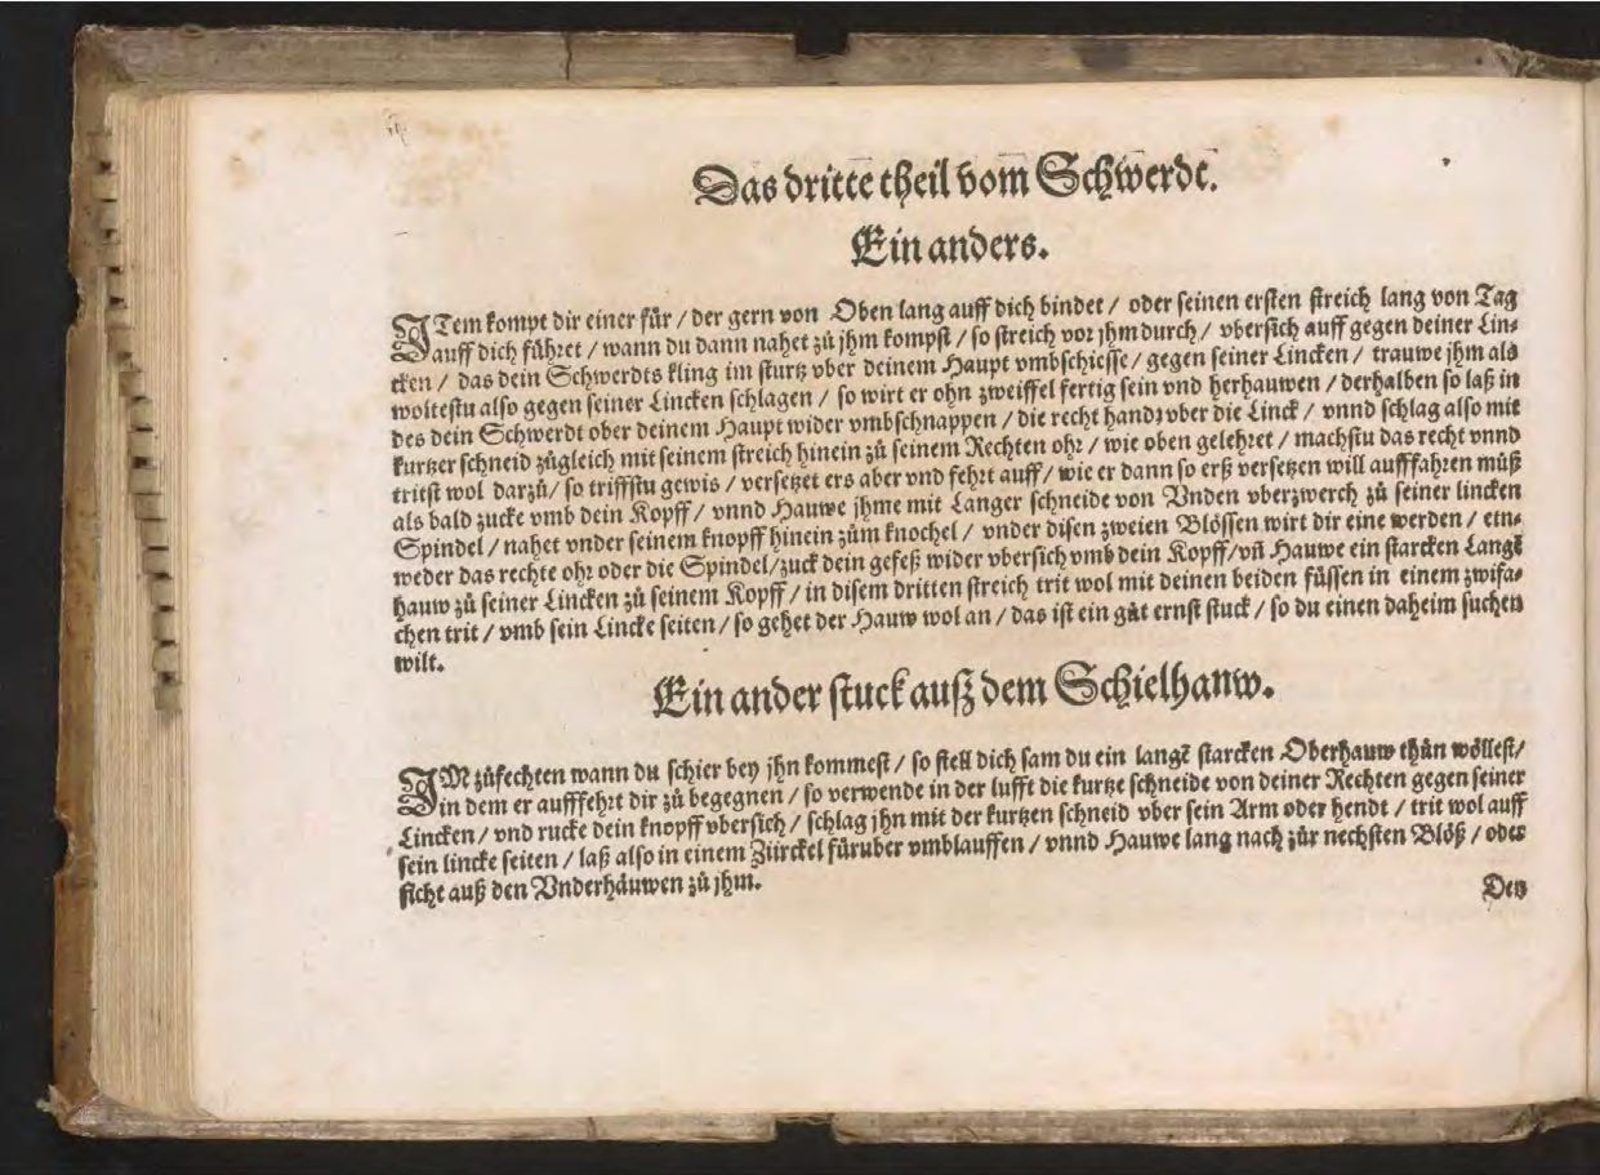 Das dritte theil vom̄ Schwerdt.
Ein anders.
ITem kompt dir einer für / der gern von Oben lang auff dich bindet / oder seinen ersten streich lang von Tag
auff dich führet / wann du dann nahet zů jhm kompst / so streich vor jhm durch / vbersich auff gegen deiner Lin-
cken / das dein Schwerdts kling im sturtz vber deinem Haupt vmbschiesse / gegen seiner Lincken / trauwe jhm als
woltestu also gegen seiner Lincken schlagen / so wirt er ohn zweiffel fertig sein vnd herhauwen / derhalben so laß in
des dein Schwerdt ober deinem Haupt wider vmbschnappen / die recht handz vber die Linck / vnnd schlag also mit
kurtzer schneid zůgleich mit seinem streich hinein zů seinem Rechten ohr / wie oben gelehret / machstu das recht vnnd
tritst wol darzů / so triffstu gewis / versetzet ers aber vnd fehrt auff / wie er dann so erß versetzen will aufffahren můß
als bald zucke vmb dein Kopff / vnnd Hauwe jhme mit Langer schneide von Vnden vberzwerch zů seiner lincken
Spindel / nahet vnder seinem knopff hinein zům knochel / vnder disen zweien Blössen wirt dir eine werden / etn-
weder das rechte ohr oder die Spindel / zuck dein gefeß wider vbersich vmb dein Kopff / vñ Hauwe ein starcken Langē
hauw zů seiner Lincken zů seinem Kopff / in disem dritten streich trit wol mit deinen beiden füssen in einem zwifa-
chen trit / vmb sein Lincke seiten / so gehet der Hauw wol an / das ist ein gůt ernst stuck / so du einen daheim suchen
wilt.
Ein ander stuck auß dem Schielhauw.
IM zůfechten wann du schier bey jhn kommest / so stell dich sam du ein langē starcken Oberhauw thůn wöllest /
in dem er aufffehrt dir zů begegnen / so verwende in der lufft die kurtze schneide von deiner Rechten gegen seiner
Lincken / vnd rucke dein knopff vbersich / schlag jhn mit der kurtzen schneid vber sein Arm oder hendt / trit wol auff
sein lincke seiten / laß also in einem Zürckel füruber vmblauffen / vnnd Hauwe lang nach zůr nechsten Blöß / oder
ficht auß den Vnderhäuwen zů jhm.
Den